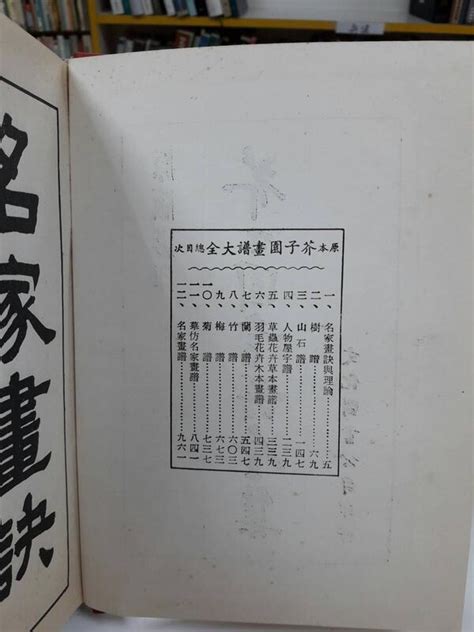 原本芥子園畫譜大全總目次
一、名家畫訣與理論……五
二、樹譜……六九
三、山石譜……一四七
四、人物屋宇譜……二三九
五、草蟲花卉草本畫譜……三三九
六、羽毛花卉木本畫譜……四三九
七、蘭譜……五四七
八、竹譜……六〇三
九、梅譜……六七三
一〇、菊譜……七三七
一一、摹仿名家畫譜……八四一
一二、名家畫譜……九六一
名家畫訣